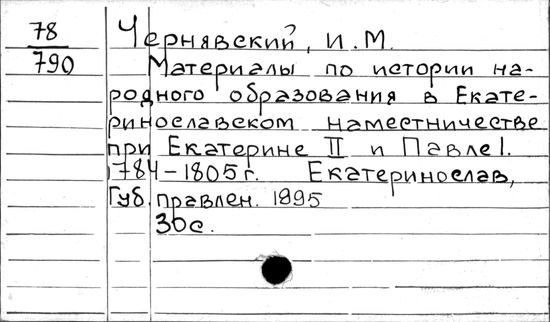 78
790
Чернявский, И.М.
Материалы по истории на-
родного образования в Екате-
ринославском наместничестве
при Екатерине II и Павле I.
1784-1805 г. Екатеринослав,
Губ. правлен. 1895
30с.